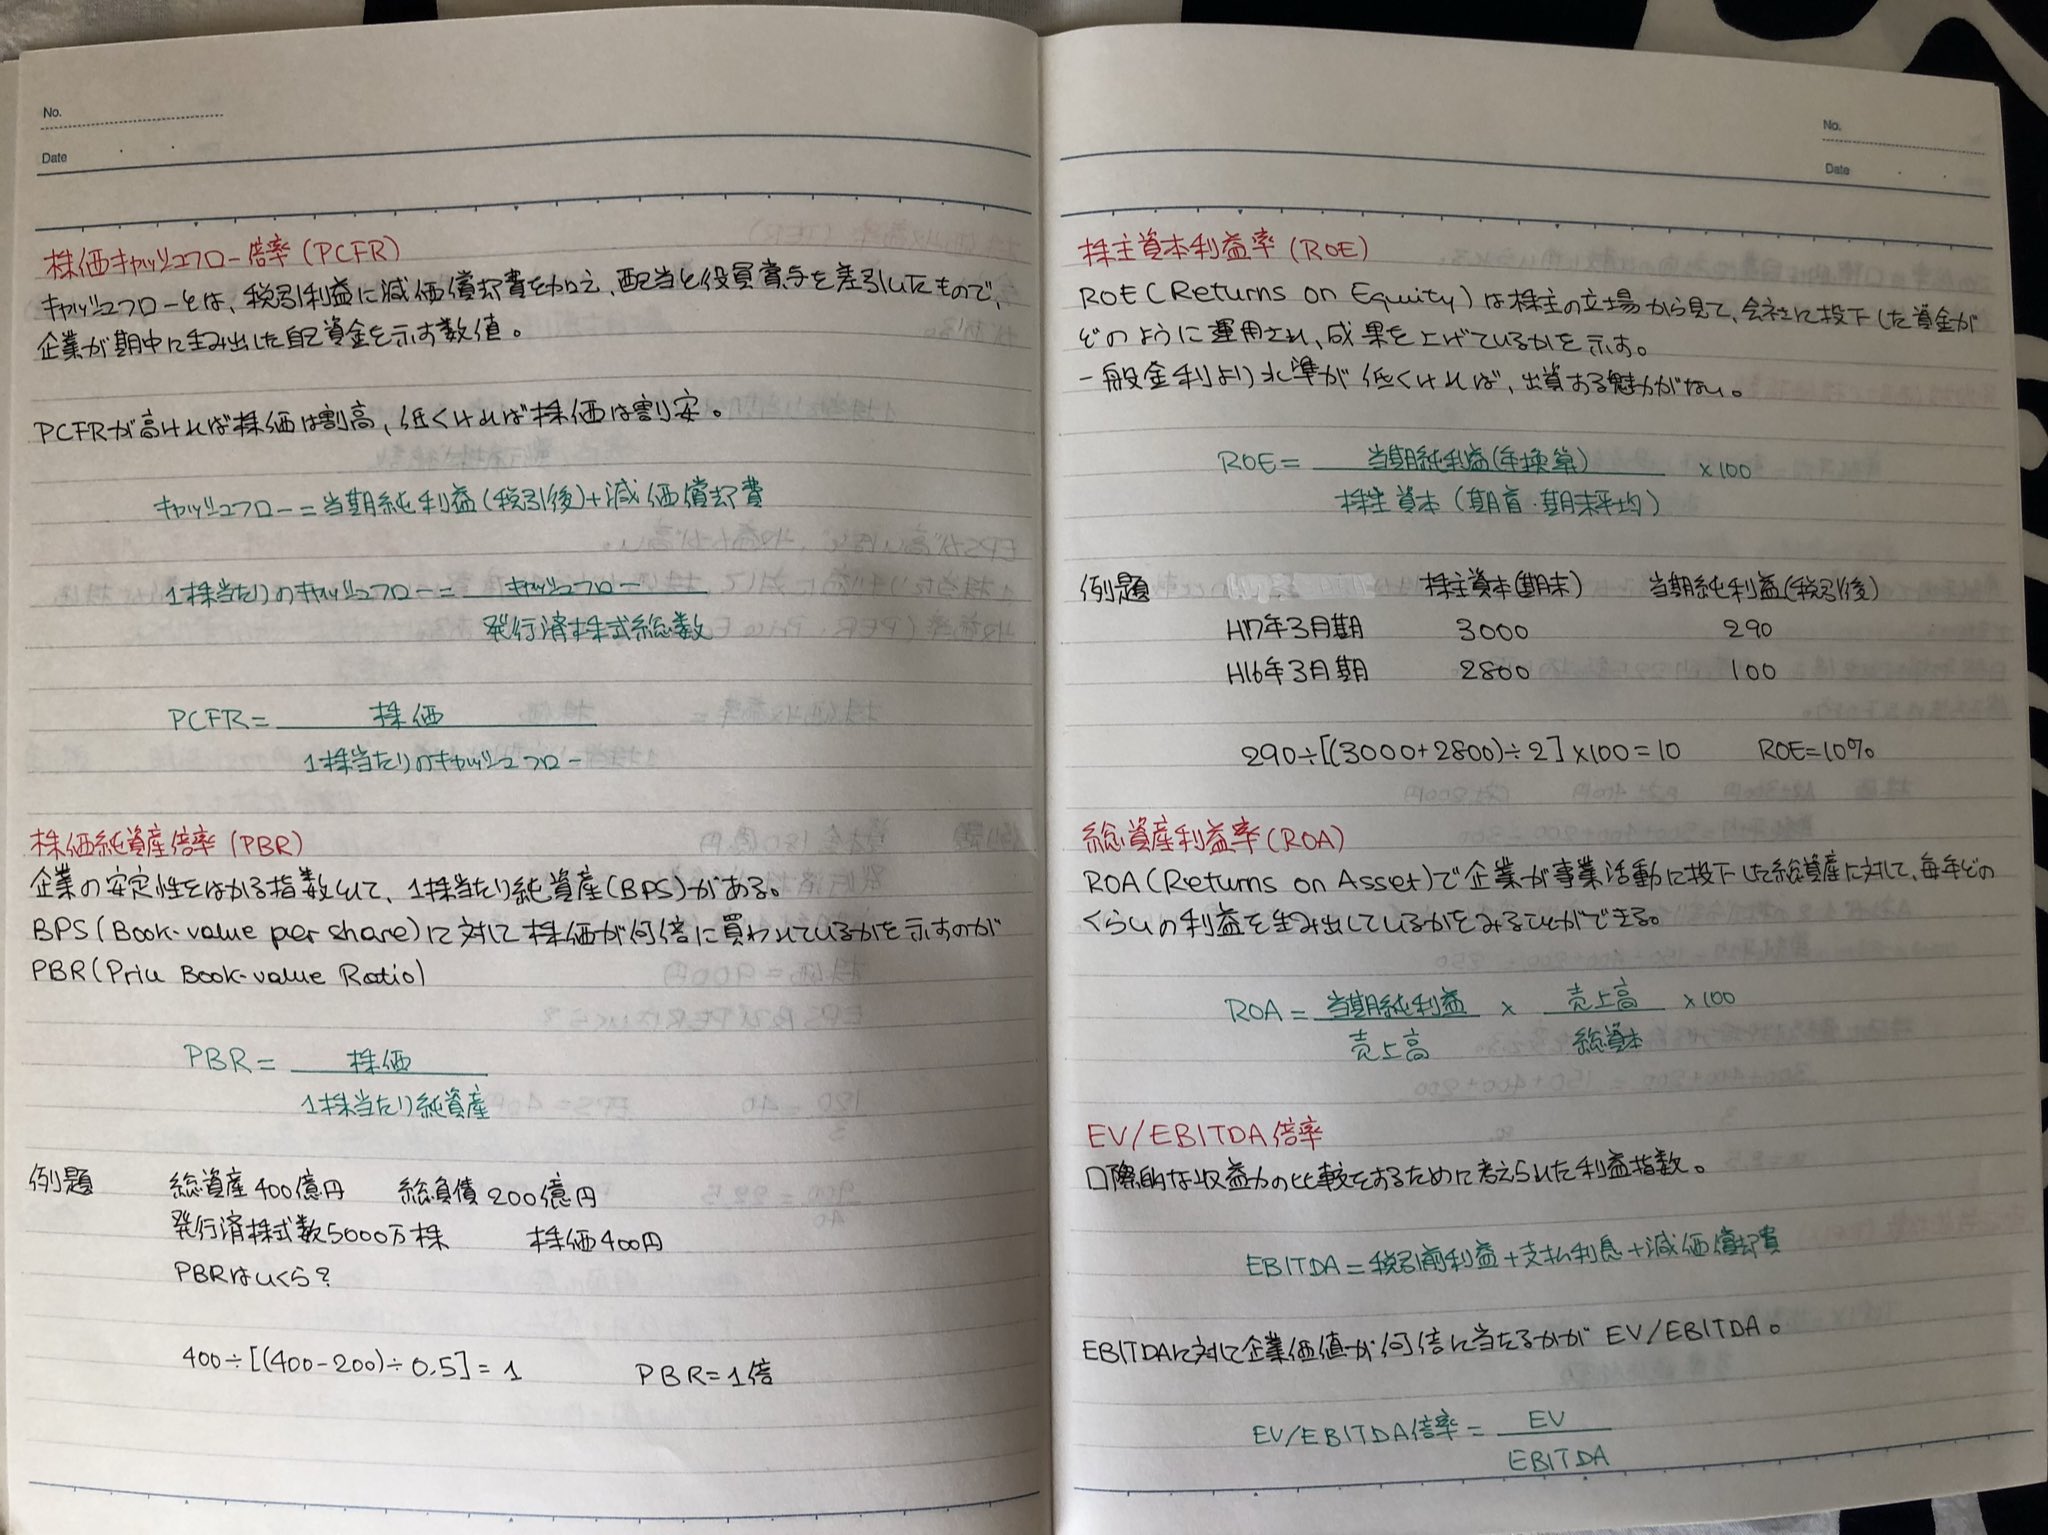 No.
Date
株価キャッシュフロー倍率(PCFR)
キャッシュフローとは、税引利益に減価償却費を加え、配当と役員賞与を差引いたもので、
企業が期中に生み出した自己資金を示す数値。
PCFRが高ければ株価は割高、低くければ株価は割り安。
キャッシュフロー=当期純利益(税引後)+減価償却費
1株当たりのキャッシュフロー= キャッシュフロー
発行済株式総数
PCFR= 株価
1株当たりのキャッシュフロー
株価純資産倍率(PBR)
企業の安定性をはかる指数として、1株当たり純資産(BPS)がある。
BPS(Book-value per share)に対して株価が何倍に買われているかを示すのが
PBR(Price Book-value Ratio)
PBR= 株価
1株当たり純資産
例題 総資産400億円 総負債200億円
発行済株式数5000万株 株価400円
PBRはいくら?
400÷[(400-200)÷0.5]=1 PBR=1倍
No.
Date
株主資本利益率(ROE)
ROE(Returns on Equity)は株主の立場から見て、会社に投下した資金が
どのように運用され、成果を上げているかを示す。
一般金利より水準が低くければ、出資する魅力がない。
ROE= 当期純利益(年換算) ×100
株主資本(期首・期末平均)
例題 株主資本(期末) 当期純利益(税引後)
H17年3月期 3000 290
H16年3月期 2800 100
290÷[(3000+2800)÷2]×100=10 ROE=10%
総資産利益率(ROA)
ROA(Returns on Asset)で企業が事業活動に投下した総資産に対して、毎年どの
くらいの利益を生み出しているかをみることができる。
ROA= 当期純利益 × 売上高 ×100
売上高 総資本
EV/EBITDA倍率
口際的な収益力の比較をするために考えられた利益指数。
EBITDA=税引前利益+支払利息+減価償却費
EBITDAに対して企業価値が何倍に当たるかがEV/EBITDA。
EV/EBITDA倍率= EV
EBITDA